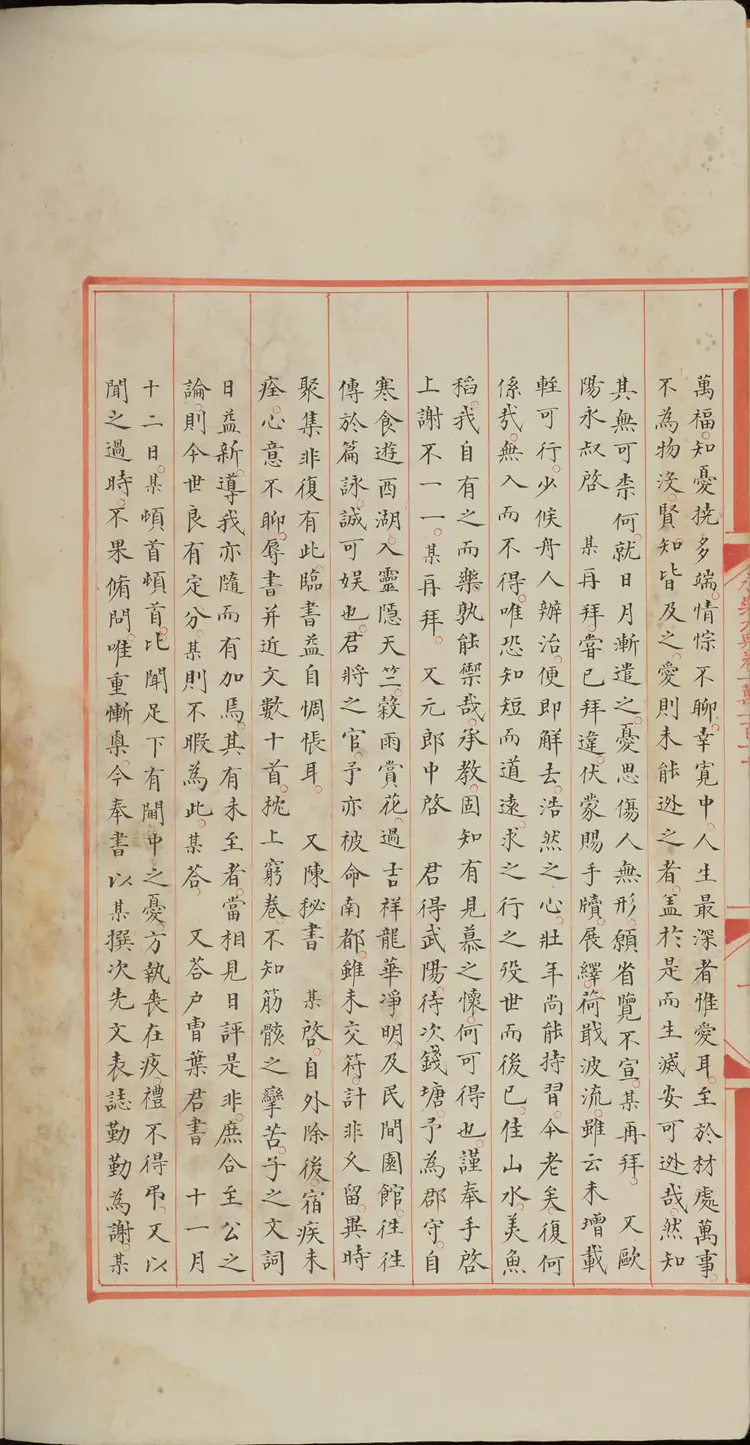 萬福。知憂撓多端。情悰不聊。幸寬中。人生最深者惟愛耳。至於材處萬事。
不為物没。賢知皆及之。愛則未能迯之者。盖於是而生滅安可迯哉。然知
其無可柰何。就日月漸遣之。憂思傷人無形。願省覽不宣。某再拜。 又歐
陽永叔啓 某再拜。甞已拜違。伏蒙賜手牘。展繹荷戢波流。雖云未熷載
輊可行。少候舟人辦治。便即解去。浩然之心。壯年尚能持習。今老矣。復何
係㢤。無入而不得。唯恐知短而道遠。求之行之殁世而後已。佳山水。美魚
稻。我自有之而樂孰能禦哉。承教。固知有見慕之懷。何可得也。謹奉手啓
上謝不一一。某再拜。 又元郎中啓 君得武陽。待次錢塘。予為郡守。自
寒食遊西湖。入靈隱天竺。糓雨賞花。過吉祥龍華凈明及民間園館。徃徃
傳於篇詠。誠可娱也。君將之官。予亦被命南都。雖未交符。計非久留。異時
聚集非復有此。臨書益自惆悵耳。 又陳秘書 某啓。自外除後。宿疾未
痊。心意不聊。辱書并近文數十首。枕上窮卷。不知筋骸之攣苦。子之文詞
日益新。導我亦隨而有加焉。其有未至者。當相見日評是非。庶合至公之
論。則今世良有定分。某則不暇為此。某荅。 又荅户曺葉君書 十一月
十二日。某頓首頓首。比聞足下有閫中之憂。方執喪在疚。禮不得弔。又以
聞之過時。不果脩問。唯重慚㮚。今奉書以某撰次先文表誌勤勤為謝。某